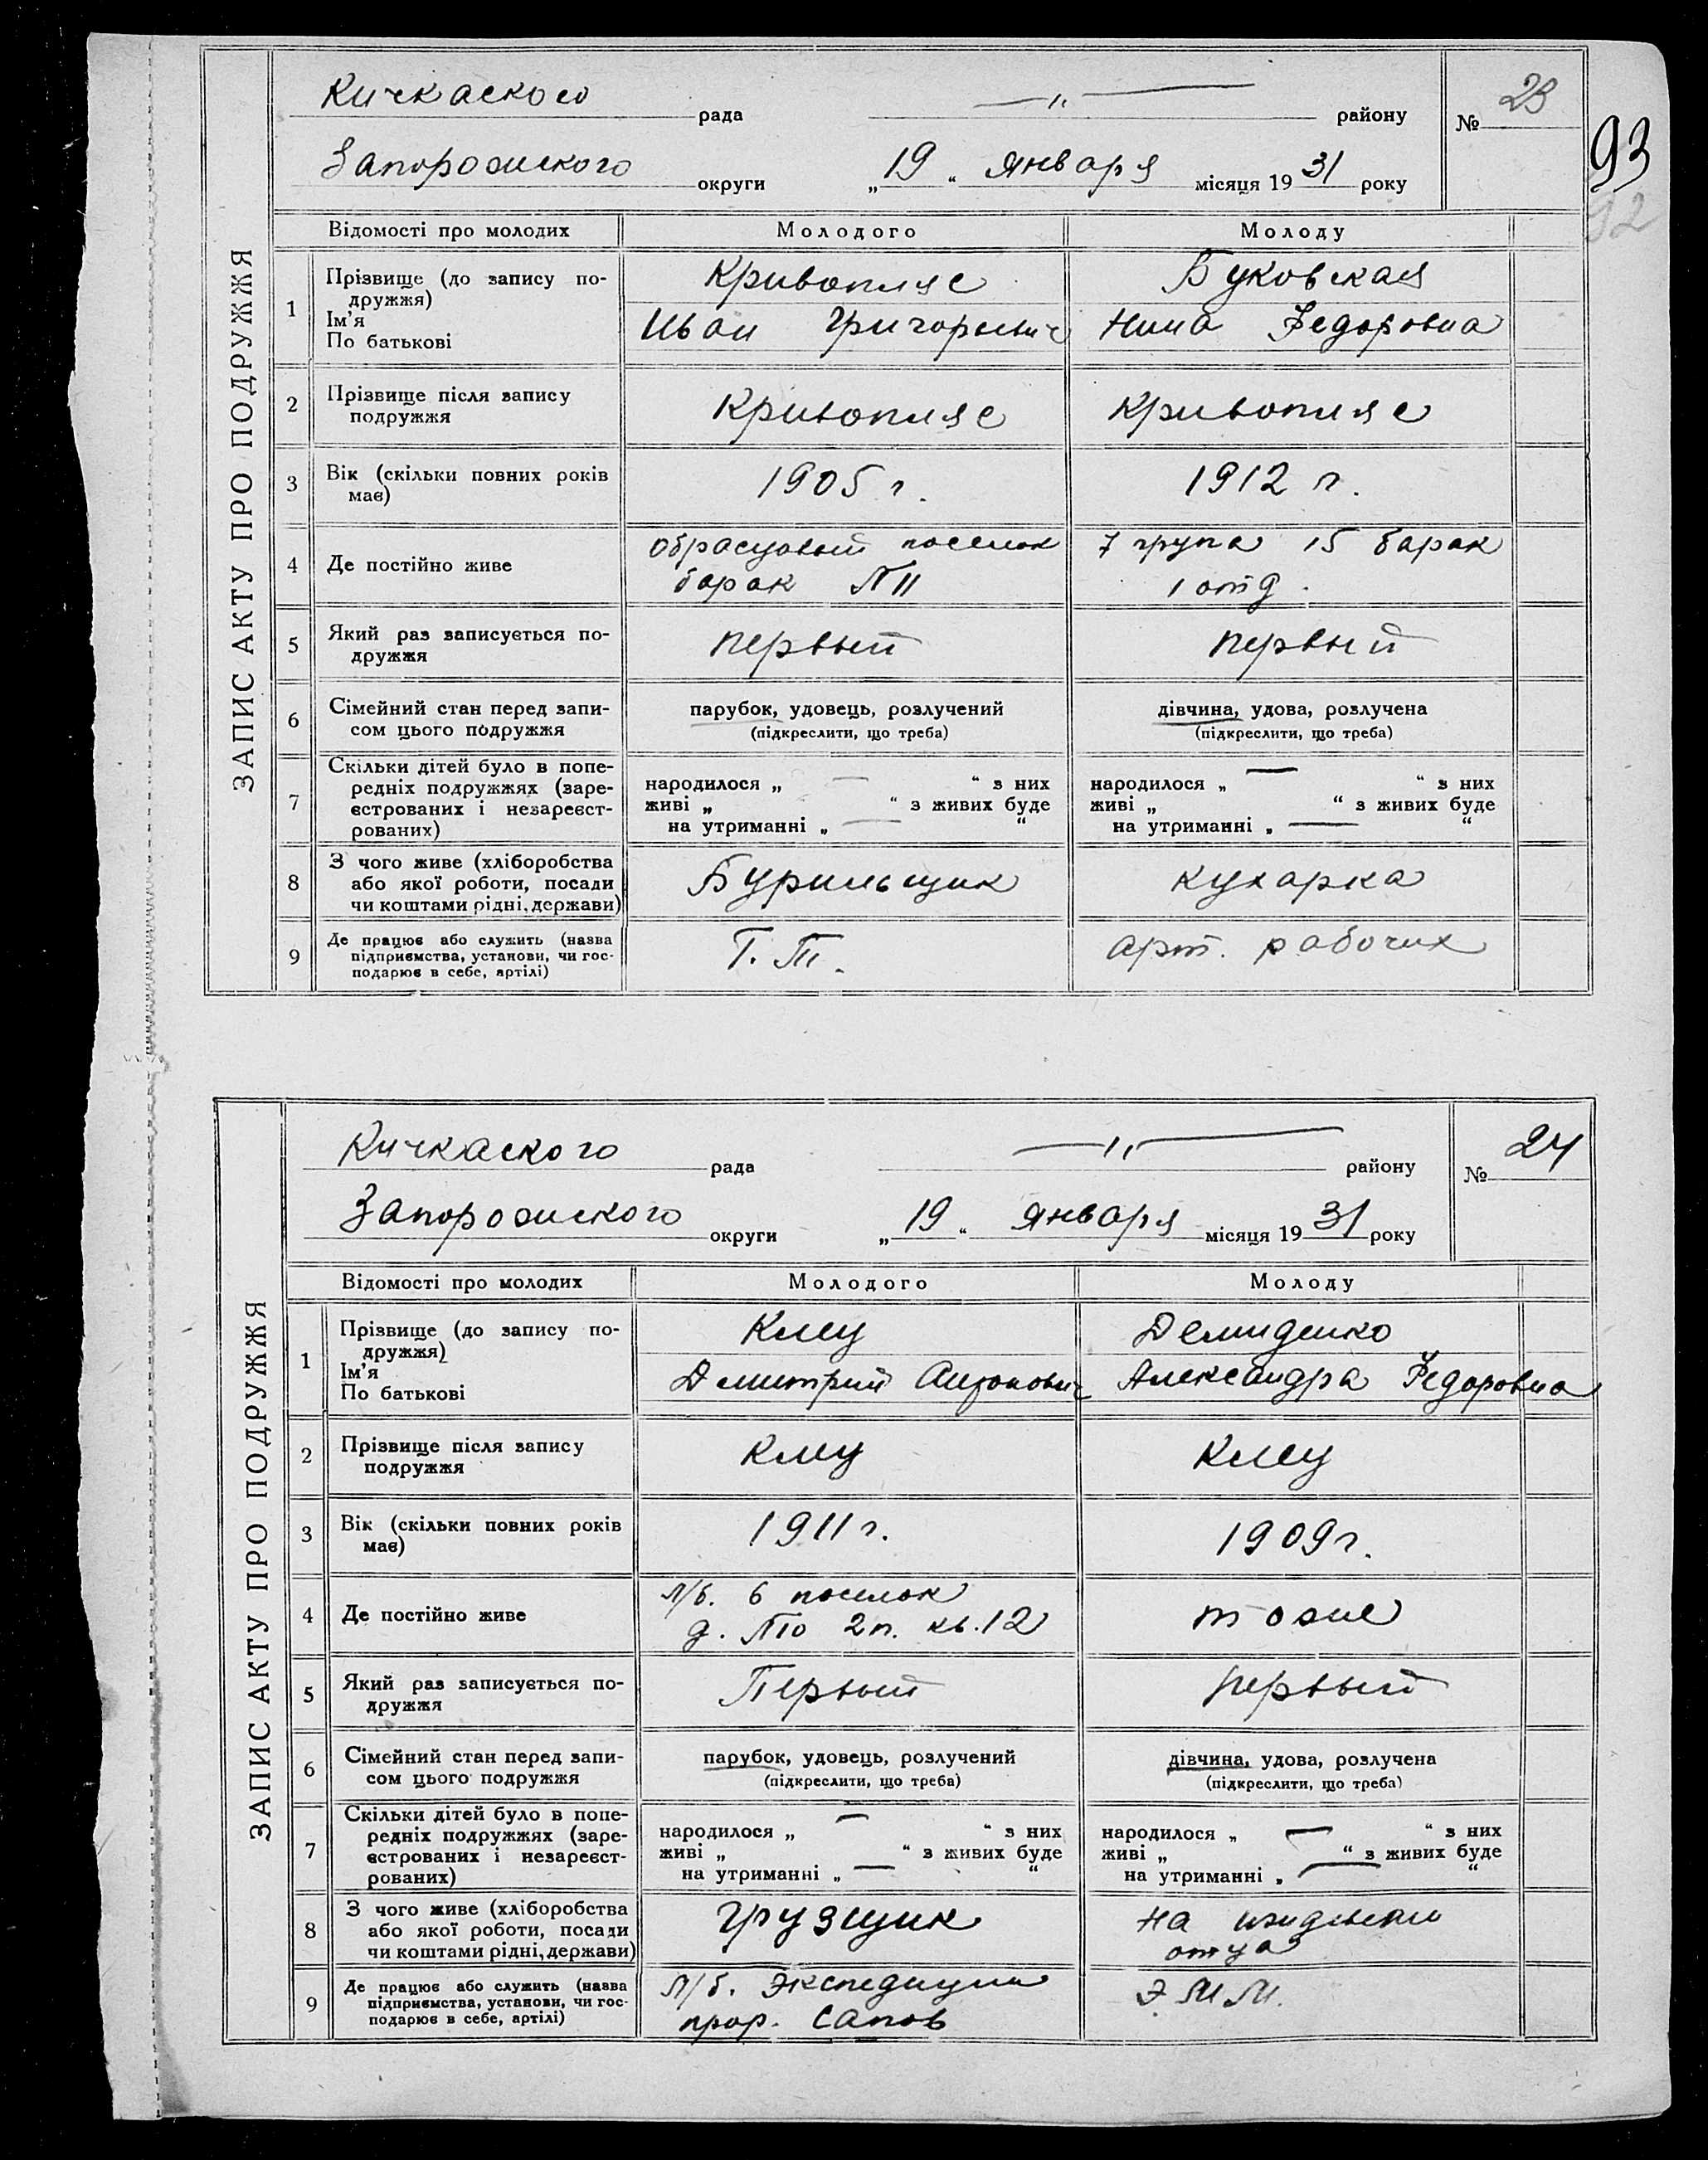 Кичкаского рада —„— району № 23
93
92
Запорожского округи „19“ января місяця 1931 року
ЗАПИС АКТУ ПРО ПОДРУЖЖЯ
Відомості про молодих Молодого Молоду
1 Прізвище (до запису по-
дружжя)
Ім'я
По батькові
Кривопляс
Иван Григорьевич
Буковская
Нина Федоровна
2 Прізвище після запису
подружжя
Кривопляс
Кривопляс
3 Вік (скільки повних років
має)
1905 г.
1912 г.
4 Де постійно живе
образцовый поселок
барак №11
7 група 15 барак
1 отд.
5 Який раз записується по-
дружжя
первый
первый
6 Сімейний стан перед запи-
сом цього подружжя
парубок, удовець, розлучений
(підкреслити, що треба)
дівчина, удова, розлучена
(підкреслити, що треба)
7 Скільки дітей було в попе-
редніх подружжях (заре-
єстрованих і незареєст-
рованих)
народилося „ — “ з них
живі „ “ з живих буде
на утриманні „ — “
народилося „ — “ з них
живі „ “ з живих буде
на утриманні „ — “
8 З чого живе (хліборобства
або якої роботи, посади
чи коштами рідні, держави)
Бурильщик
кухарка
9 Де працює або служить (назва
підприємства, установи, чи гос-
подарює в себе, артілі)
Г. Т.
арт. рабочих
Кичкаского рада —„— району № 24
Запорожского округи „19“ января місяця 1931 року
ЗАПИС АКТУ ПРО ПОДРУЖЖЯ
Відомості про молодих Молодого Молоду
1 Прізвище (до запису по-
дружжя)
Ім'я
По батькові
Дмитрий Антонович
Демиденко
Александра Федоровна
2 Прізвище після запису
подружжя
3 Вік (скільки повних років
має)
1911 г.
1909 г.
4 Де постійно живе
л/б. 6 поселок
д. №10 2 п. кв. 12
тоже
5 Який раз записується по-
дружжя
Первый
первый
6 Сімейний стан перед запи-
сом цього подружжя
парубок, удовець, розлучений
(підкреслити, що треба)
дівчина, удова, розлучена
(підкреслити, що треба)
7 Скільки дітей було в попе-
редніх подружжях (заре-
єстрованих і незареєст-
рованих)
народилося „ — “ з них
живі „ “ з живих буде
на утриманні „ — “
народилося „ — “ з них
живі „ “ з живих буде
на утриманні „ — “
8 З чого живе (хліборобства
або якої роботи, посади
чи коштами рідні, держави)
грузщик
на иждевении
отца
9 Де працює або служить (назва
підприємства, установи, чи гос-
подарює в себе, артілі)
л/б. экспедиции
прор. Сапов
Э. М. М.